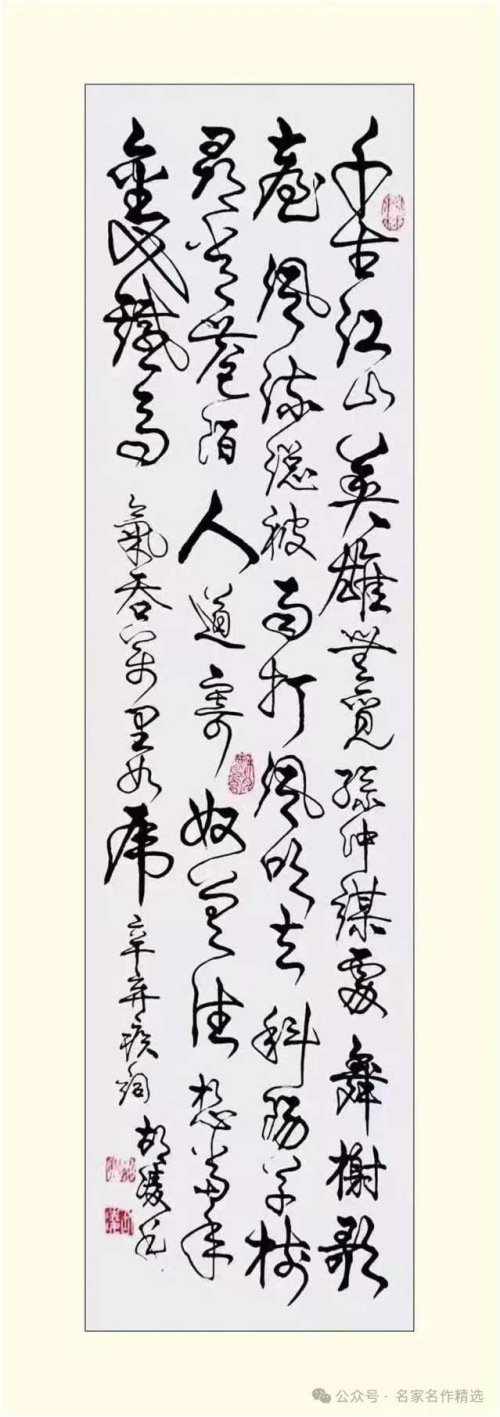 千古江山英雄無覓孫仲謀處舞榭歌
臺風流總被雨打風吹去斜陽草樹
尋常巷陌人道寄奴曾住想當年
金戈鐵馬氣吞萬里如虎辛弃疾詞胡
公众号 · 名家名作精选